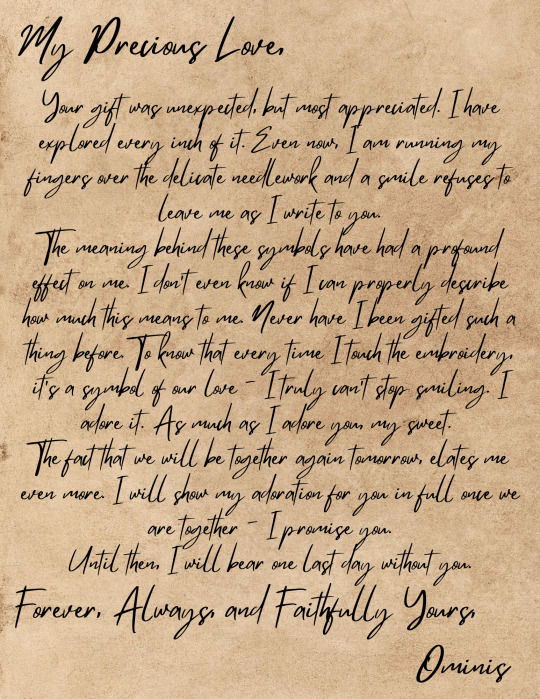 My Precious Love,
Your gift was unexpected, but most appreciated. I have
explored every inch of it. Even now, I am running my
fingers over the delicate needlework and a smile refuses to
leave me as I write to you.
The meaning behind these symbols have had a profound
effect on me. I don't even know if I can properly describe
how much this means to me. Never have I been gifted such a
thing before. To know that every time I touch the embroidery,
it's a symbol of our love - I truly can't stop smiling. I
adore it. As much as I adore you, my sweet.
The fact that we will be together again tomorrow, elates me
even more. I will show my adoration for you in full once we
are together - I promise you.
Until then, I will bear one last day without you.
Forever, Always, and Faithfully Yours,
Ominis